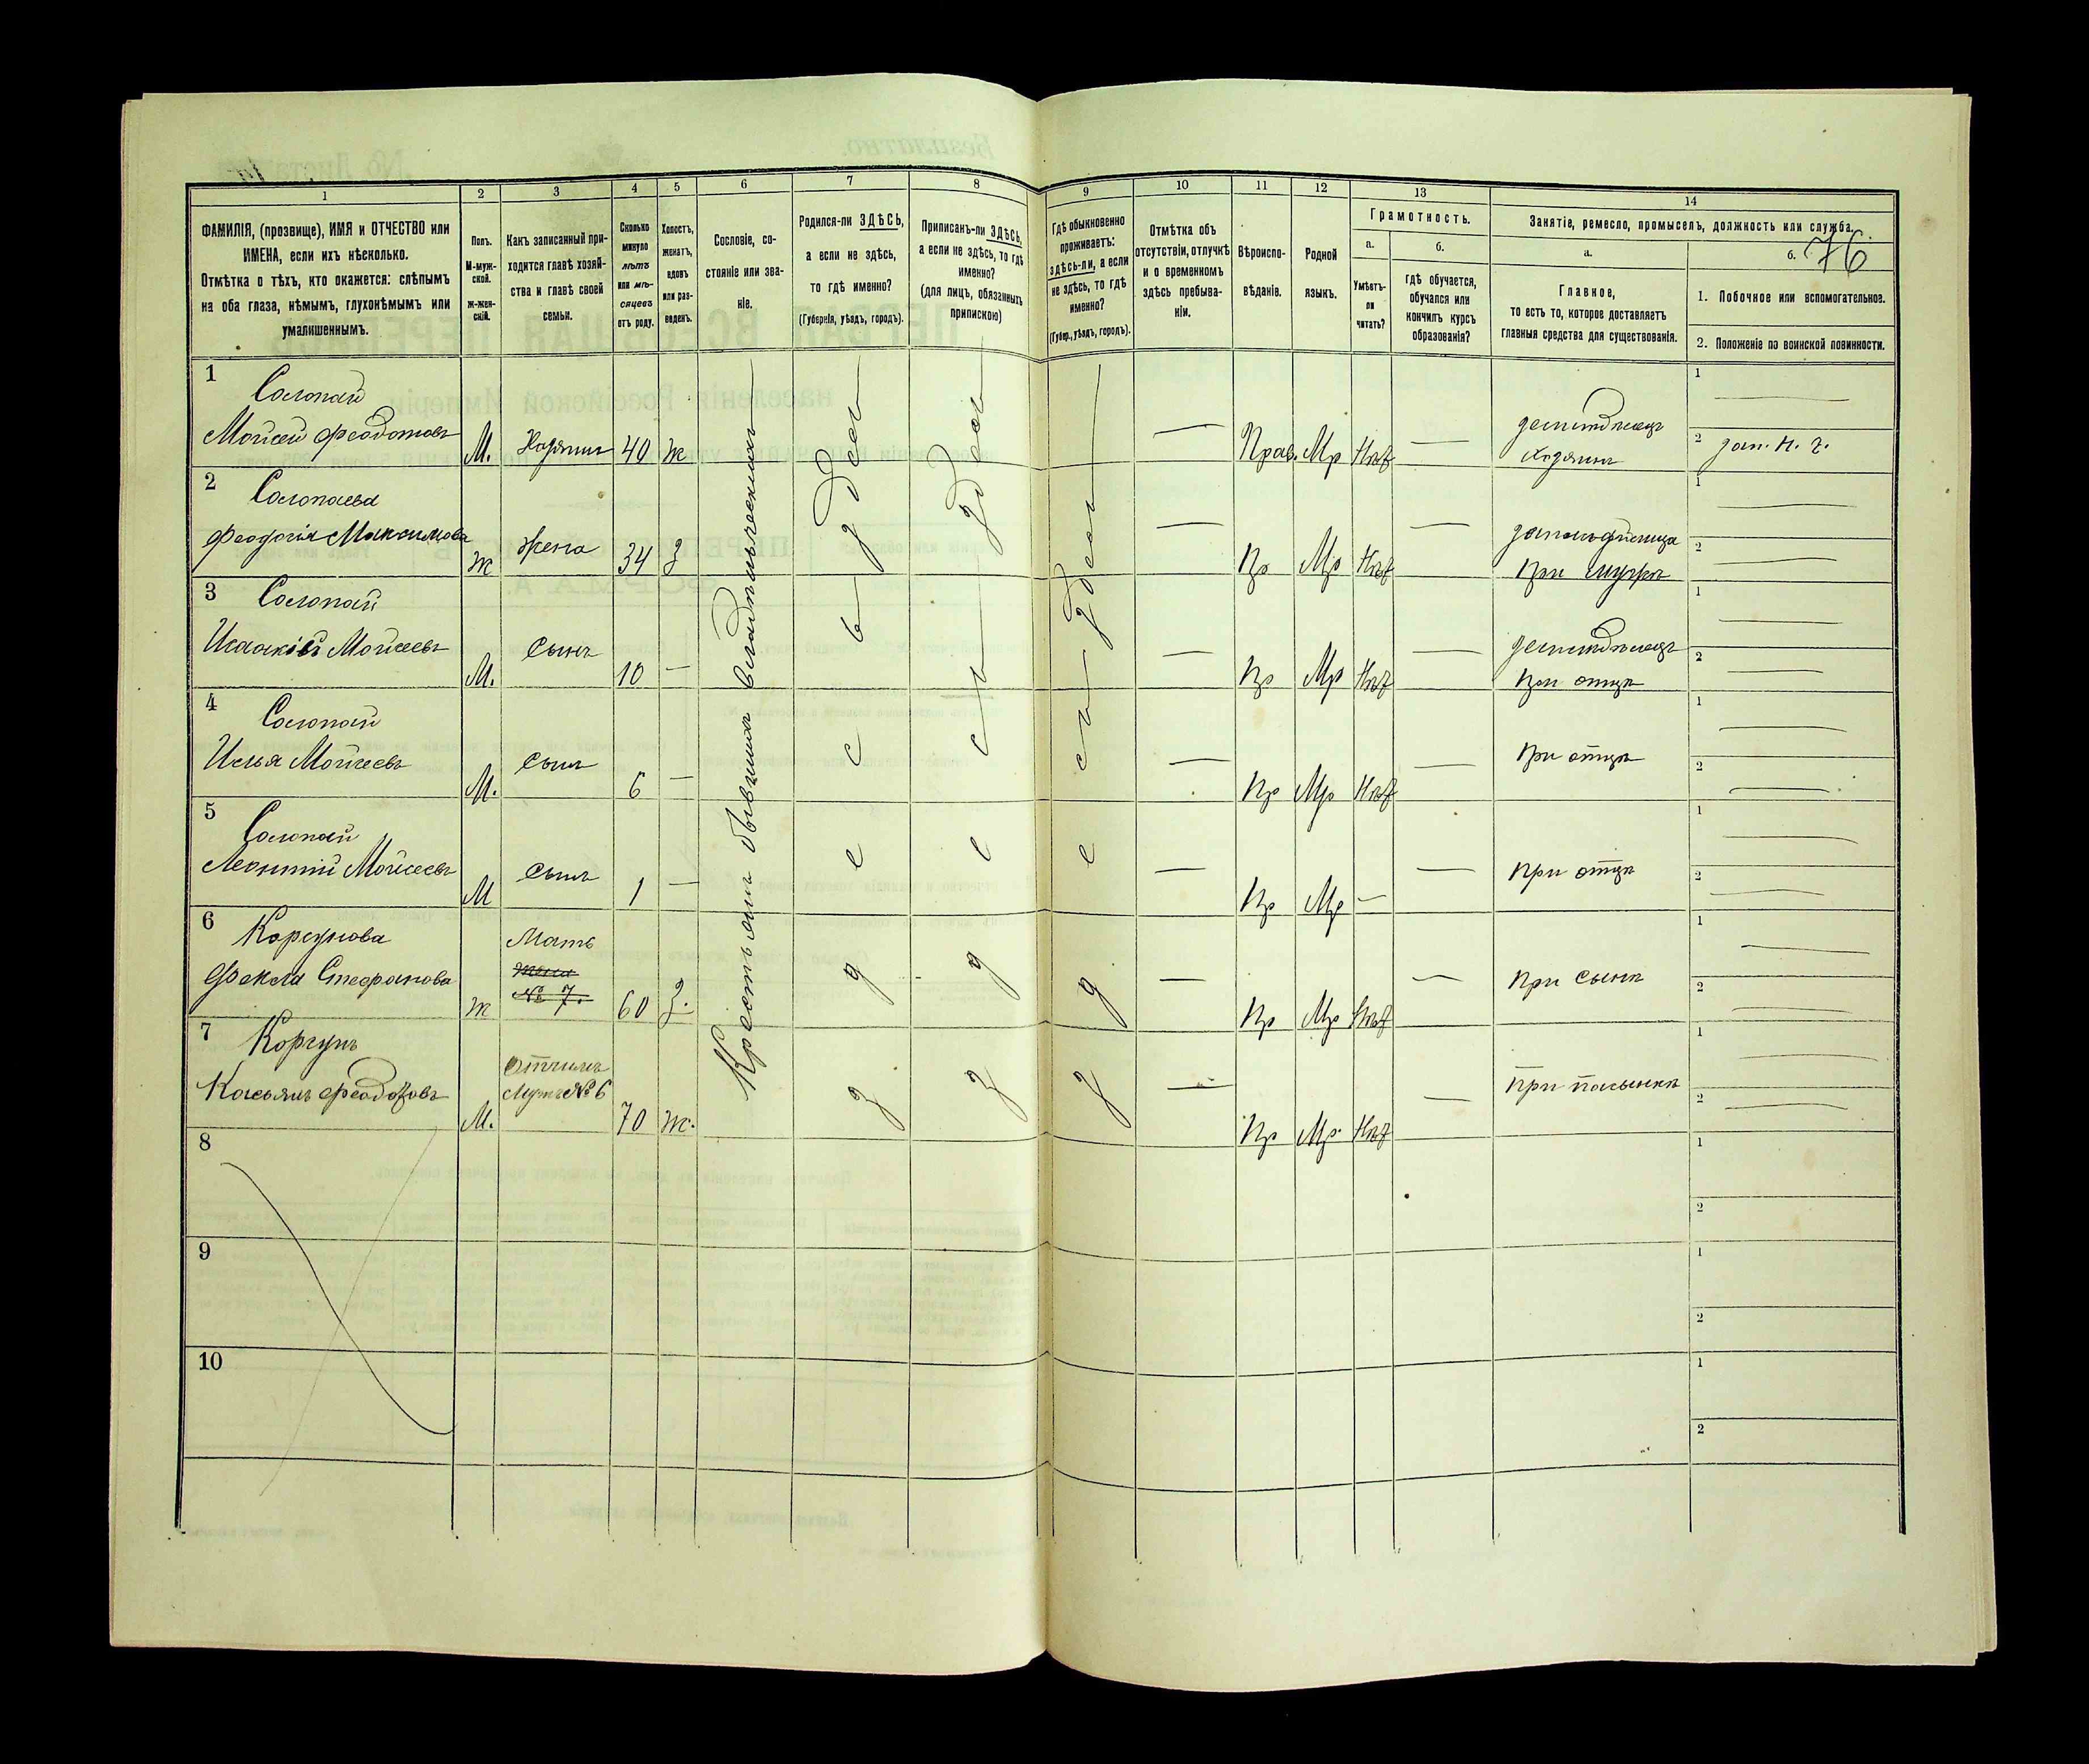 76
1 2 3 4 5 6 7 8 9 10 11 12 13 14
ФАМИЛІЯ, (прозвище), ИМЯ и ОТЧЕСТВО или
ИМЕНА, если ихъ нѣсколько.
Отмѣтка о тѣхъ, кто окажется: слѣпымъ
на оба глаза, нѣмымъ, глухонѣмымъ или
умалишеннымъ.
Полъ.
М-муж-
ской.
ж-жен-
скій.
Какъ записанный при-
ходится главѣ хозяй-
ства и главѣ своей
семьи.
Сколько
минуло
лѣтъ
или мѣ-
сяцевъ
отъ роду.
Холостъ,
женатъ,
вдовъ
или раз-
веденъ.
Сословіе, со-
стояніе или зва-
ніе.
Родился-ли ЗДѢСЬ,
а если не здѣсь,
то гдѣ именно?
(Губернія, уѣздъ, городъ).
Приписанъ-ли ЗДѢСЬ,
а если не здѣсь, то гдѣ
именно?
(для лицъ, обязанныхъ
припискою)
Гдѣ обыкновенно
проживаетъ:
здѣсь-ли, а если
не здѣсь, то гдѣ
именно?
(Губер., уѣздъ, городъ).
Отмѣтка объ
отсутствіи, отлучкѣ
и о временномъ
здѣсь пребыва-
ніи.
Вѣроиспо-
вѣданіе.
Родной
языкъ.
Грамотность.
а.
Умѣетъ-
ли
читать?
б.
Гдѣ обучается,
обучался или
кончилъ курсъ
образованія?
Занятіе, ремесло, промыселъ, должность или служба.
а.
Главное,
то есть то, которое доставляетъ
главныя средства для существованія.
б.
1. Побочное или вспомогательное.
2. Положеніе по воинской повинности.
Крестьянинъ бывшихъ владѣльческихъ
здесь
здесь
здесь
1
Солопай
Мойсей Феодотовъ
М. Хозяинъ 40 ж
Прав. Мр Нѣт
Хозяинъ
1
2
2
Солопаева
Феодосія Максимова
ж Жена 34 З
Пр Мр Нѣт
При мужѣ
1
2
3
Солопай
Исаакій Мойсеевъ
М. Сынъ 10 —
Пр Мр Нѣт
При отцѣ
1
2
4
Солопай
Илья Мойсеевъ
М. Сынъ 6 —
Пр Мр Нѣт
При отцѣ
1
2
5
Солопай
Леонтій Мойсеевъ
М Сынъ 1 —
Пр Мр —
При отцѣ
1
2
6
Корсунова
Фекла Стефанова
ж Мать
Жена
№ 7.
60 З.
Пр Мр Нѣт
При сынѣ
1
2
7
Корсунъ
Касьянъ Феодотовъ
М. Отчимъ
Мужъ № 6
70 ж.
Пр Мр. Нѣт
При пасынкѣ
1
2
8
1
2
9
1
2
10
1
2